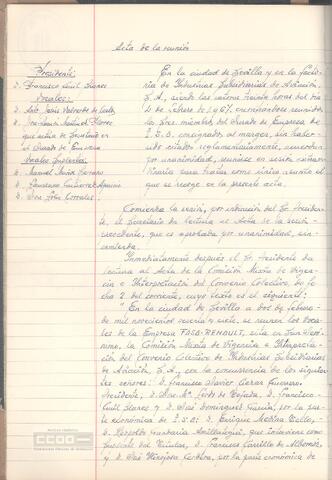 Acta de la reunión
Presidente
D. Francisco Cuill Llanes
Vocales:
D. José
D. José
que actúa de Secretario en
el Jurado de Empresa
Vocales Suplentes:
D. Manuel
D. Francisco Gutiérrez
D. José Peña Corrales
En la ciudad de Sevilla y en la facto-
ría de Industrias Subsidiarias de Aviación,
S.A., siendo las catorce treinta horas del día
de febrero de 1967, encontrándose reunidos
los Sres. miembros del Jurado de Empresa de
I.S.A. consignados al margen, sin haber
sido citados reglamentariamente, acuerdan
por unanimidad, reunirse en sesión extraor-
dinaria para tratar como único asunto el
que se recoge en la presente acta.
Comienza la sesión, por indicación del Sr. Presiden-
te, el Secretario da lectura al Acta de la sesión
precedente, que es aprobada por unanimidad, sin
enmienda.
Inmediatamente después el Sr. Presidente da
lectura al Acta de la Comisión Mixta de Vigen-
cia e Interpretación del Convenio Colectivo, de fe-
cha 2 del corriente, cuyo texto es el siguiente:
"En la ciudad de Sevilla a dos de febrero
de mil novecientos sesenta y siete, se reunen los Voca-
les de la Empresa FASA-RENAULT, sita en San Jeró-
nimo, la Comisión Mixta de Vigencia e Interpreta-
ción del Convenio Colectivo de Industrias Subsidiarias
de Aviación, S.A., con la concurrencia de los siguien-
tes señores: D. Francisco Javier Guerrero,
Presidente, D. José Mª de Tejada, D. Francisco
Cuill Llanes y D. José Domínguez García, por la par-
te económica de I.S.A. D. Enrique Medina Tello,
D. Leopoldo que interviene como
suplente del titular, D. Francisco Carrillo de Albornoz,
y D. José Hinojosa Cordoba, por la parte económica de
CCOO